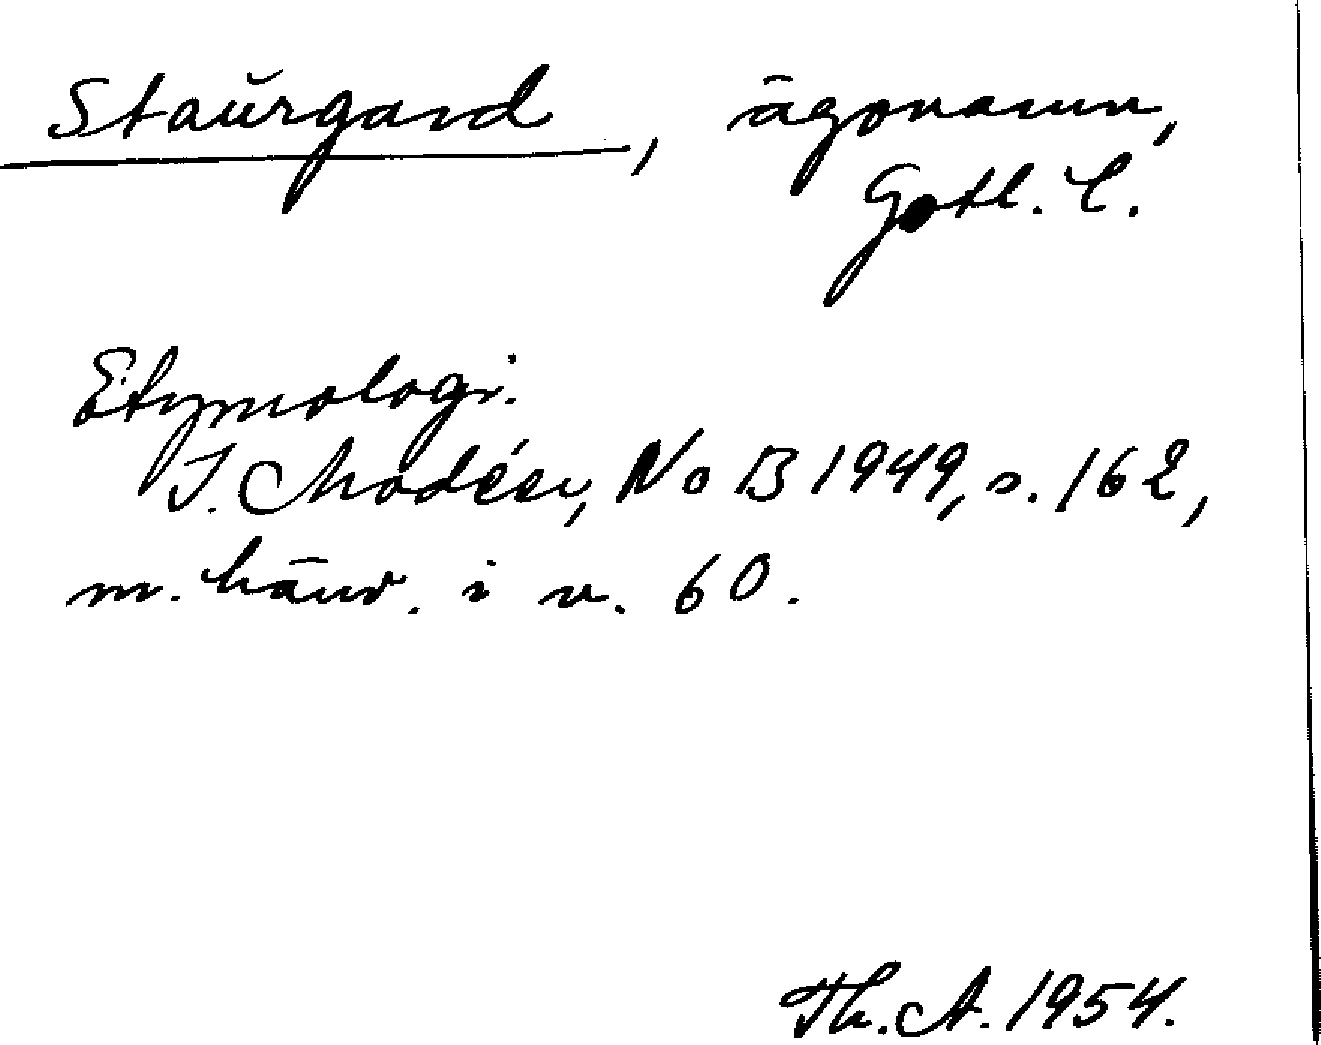 Staŭrgard, ägonamn,
Gotl. l.
Etymologi.
I. Modéer, NoB 1949, s. 162,
m. hänv. i n. 60.
Th. A. 1954.